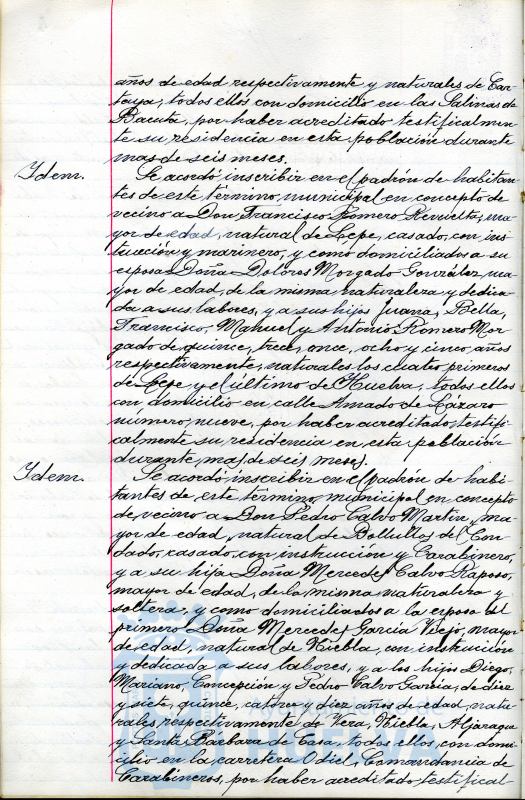 años de edad respectivamente y naturales de Car-
taya; todos ellos con domicilio en las Salinas de
Bacuta, por haber acreditado testificalmen-
te su residencia en esta población durante
mas de seis meses.
Idem.
Se acordó inscribir en el padrón de habitan-
tes de este término municipal en concepto de
vecino a Don Francisco Romero Revuelta, ma-
yor de edad, natural de Lepe, casado, con ins-
trucción y marinero, y como domiciliados a su
esposa Doña Dolores Morgado González, ma-
yor de edad, de la misma naturaleza y dedica-
da a sus labores, y a sus hijos Juana, Bella,
Francisco, Manuel y Antonio Romero Mor-
gado de quince, trece, once, ocho y cinco años
respectivamente, naturales los cuatro primeros
de Lepe y el último de Huelva; todos ellos
con domicilio en calle Amado de Lázaro
número nueve, por haber acreditado testifi-
calmente su residencia en esta población
durante mas de seis meses.
Idem.
Se acordó inscribir en el padrón de habi-
tantes de este término municipal en concepto
de vecino a Don Pedro Calvo Martín, ma-
yor de edad, natural de Bollullos del Con-
dado, casado, con instrucción y Carabinero,
y a su hija Doña Mercedes Calvo Raposo,
mayor de edad, de la misma naturaleza y
soltera, y como domiciliados a la esposa del
primero Doña Mercedes García Viejo, mayor
de edad, natural de Niebla, con instrucción
y dedicada a sus labores, y a los hijos Diego,
Mariano, Concepción y Pedro Calvo García, de diez
y siete, quince, catorce y diez años de edad, natu-
rales respectivamente de Vera, Niebla, Aljaraque
y Santa Bárbara de Casa, todos ellos, con domi-
cilio en la carretera Odiel, Comandancia de
Carabineros, por haber acreditado testifical-
HUELVA